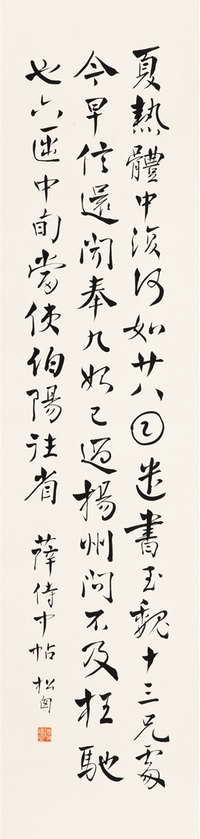 夏熱體中復何如廿八日送書至魏十三兄處
今早信還聞奉九姒已過揚州問不及枉馳
也六中旬當使伯陽往省 薛侍中帖 松